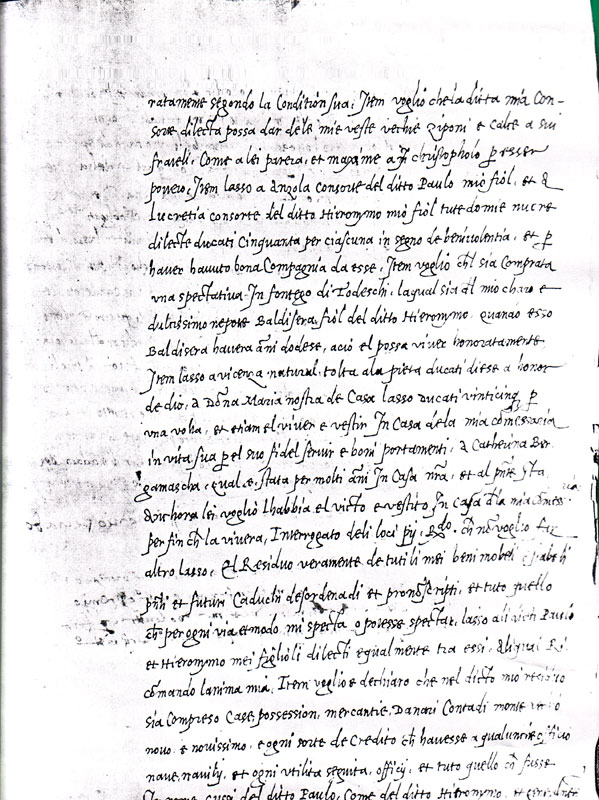 ratamente segondo la Condition sua; Item voglio che la ditta mia Con-
sorte dilecta possa dar dele mie veste vechie ziponi e calce a sui
fratelli, Come a lei parera, et maxime a christopholo per esser
povero, Item lasso a Anzola consorte del ditto Paulo mio fiol, et a
Lucretia consorte del ditto Hieronymo mio fiol tute do mie nuere
dilecte ducati Cinquanta per ciascuna in segno de benivolentia, et p
haver havuto bona Compagnia da esse, Item voglio ch'l sia Comprata
una spectativa In fontego di Todeschi, laqual sia dl mio charo e
dulcissimo nepote Baldisera fiol del ditto Hieronymo quando esso
Baldisera havera ani dodese, acio el possa viver honoratamente
Item lasso a vicenza natural tolta ala pieta ducati diese a honor
de dio, a Dona Maria nostra de Casa lasso ducati vinticinq p
una volta, et etiam el viver e vestir In Casa dela mia Comessaria
in vita sua p el suo fidel servir e boni portamenti, a Catherina Ber
gamascha, qual e stata per molti ani In Casa nra, et al pnte sta
anchora lei voglio l'habbia el victo e vestito In casa dla mia Comess
per fin ch la vivera, Interrogato deli loci pij, Rdo. ch no voglio far
altro lasso, El Residuo veramente de tuti li mei beni mobel
pnti et futuri Caduchi desordenadi et pronoscripti, et tuto quello
ch per ogni via et modo mi specta o potesse spectar, lasso ali Paulo
et Hieronymo mei figlioli dilecti egualmente tra essi, Aliquai Ri
comando lanima mia, Item voglio e dechiaro che nel dicto mio residuo
sia Compreso Case, possession, mercantie, Danari Contadi monte
novo, e novissimo, e ogni sorte de Credito ch havesse a qualunche
nave, navilij, et ogni utilita seguita, officij, et tuto quello ch fusse
In nome cussi del ditto Paulo, Come del ditto Hieronymo, et